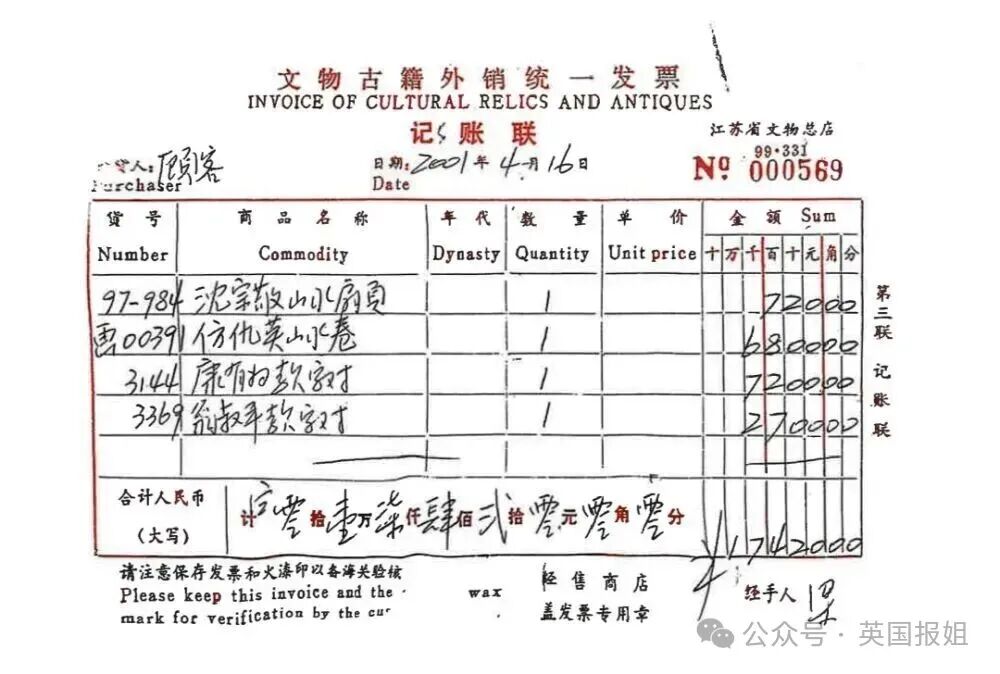 文物古籍外销统一发票
INVOICE OF CULTURAL RELICS AND ANTIQUES
记账联
江苏省文物总店
货人: 顾客
Purchaser
日期: 2001年4月16日
Date
99·331
Nº 000569
货号 商品名称 年代 数量 单价 金额 Sum
Number Commodity Dynasty Quantity Unit price 十万千百十元角分
97-984 沈宗敬山水扇頁 1 72000
画00391 仿仇英山水卷 1 680000
3144 康有为款字对 1 720000
3369 翁叔平款字对 1 270000
合计人民币
(大写)
计 零拾壹万柒仟肆佰贰拾零元零角零分
¥1742000
第三联 记账联
请注意保存发票和火漆印以备海关验核
Please keep this invoice and the wax
mark for verification by the cus
经售商店
盖发票专用章
经手人
公众号·英国报姐